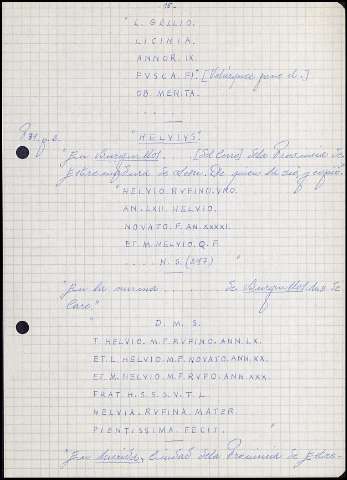 -15-
"L. GRILIO.
LICINIA.
ANNOR. IX.
FVSCA. FI." [Velázquez pone d.]
OB. MERITA.
. . . "
"HELVIVS"
"En Burguillos . . . [del Cerro] dela Provincia de
Extremadura de
"HELVIO. RVFINO. VRO.
AN. LXII. HELVIO.
NOVATO. F. AN. XXXXI.
ET. M. HELVIO. Q. F.
. . . . H. S. (247) "
"En la misma . . . . . . . de Burguillos de
"
D. M. S.
T. HELVIO. M. F. RVFINO. ANN. LX.
ET. L. HELVIO. M. F. NOVATO. ANN. XX.
ET. M. HELVIO. M. F. RVFO. ANN. XXX.
FRAT. H. S. S. S. V. T. L.
HELVIA. RVFINA. MATER.
PIENTISSIMA. FECIT. "
"En Mérida, Ciudad dela Provincia de Extre-